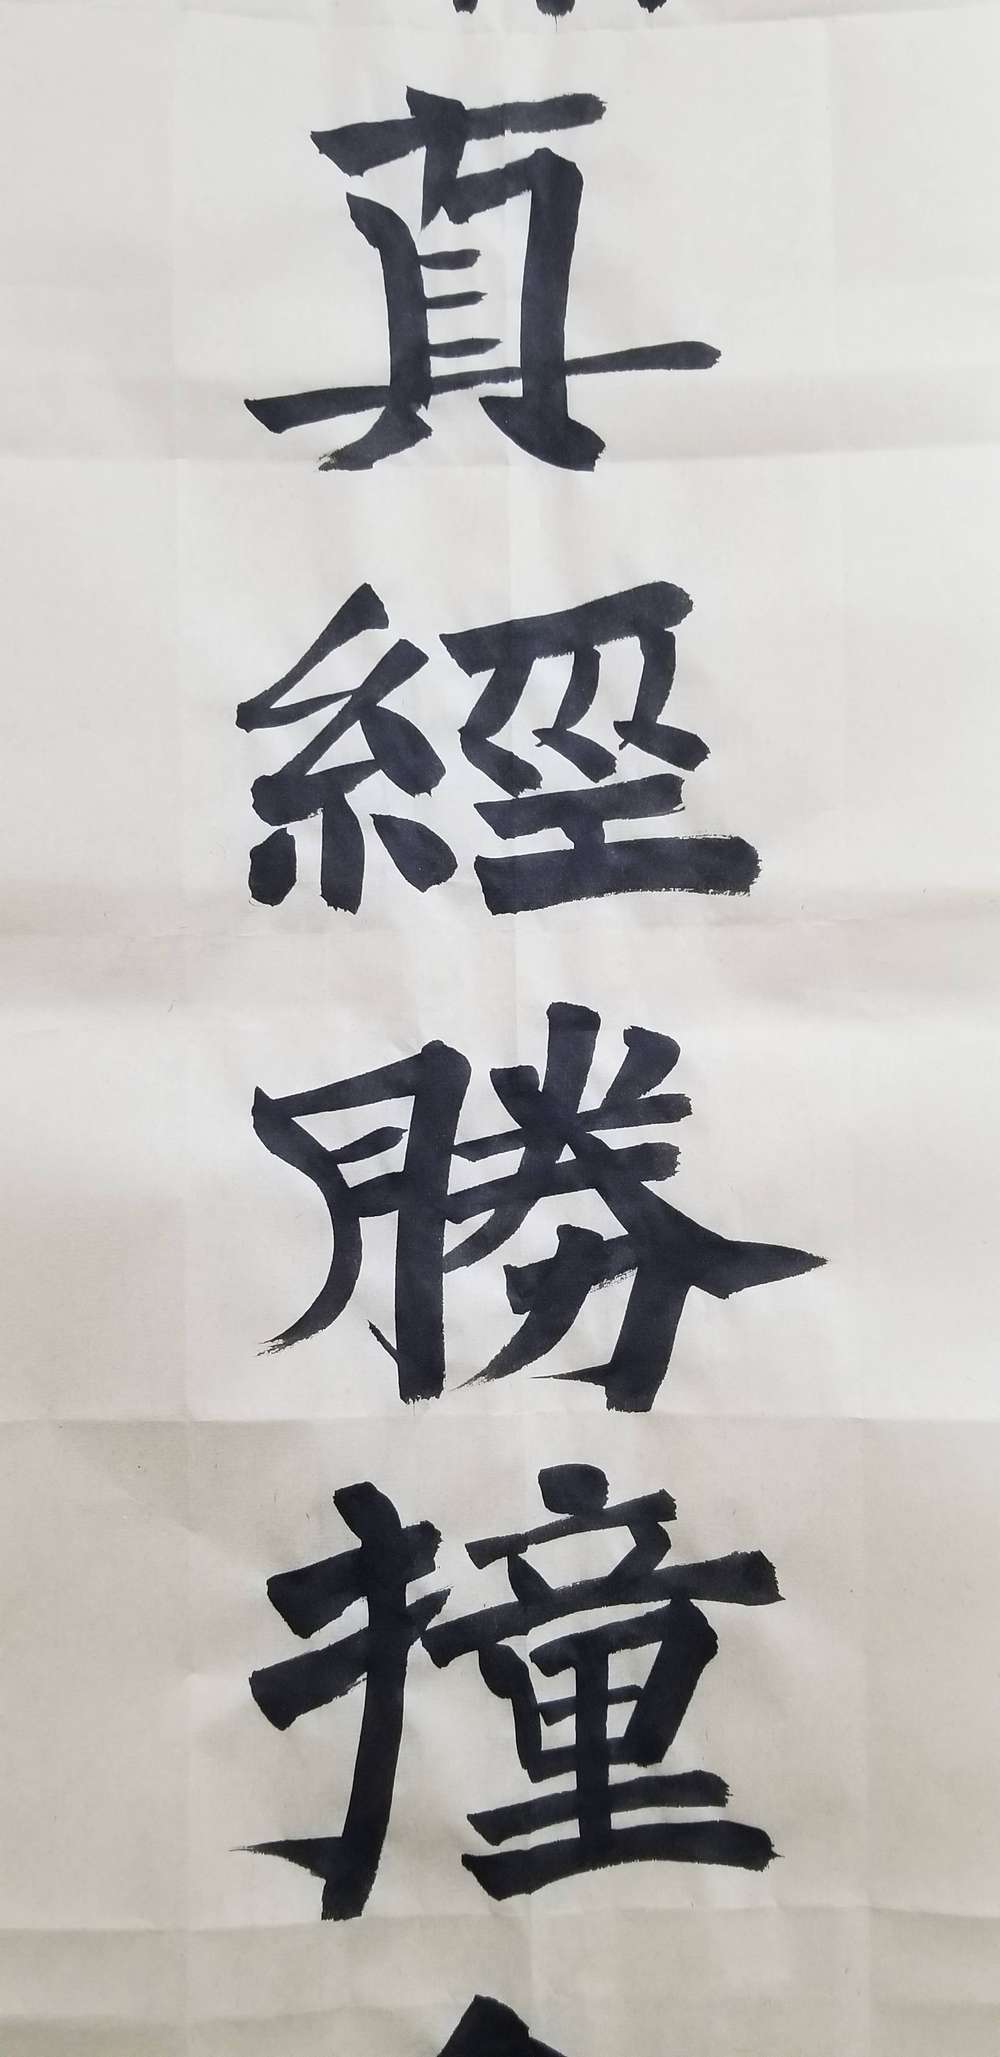 真經勝撞